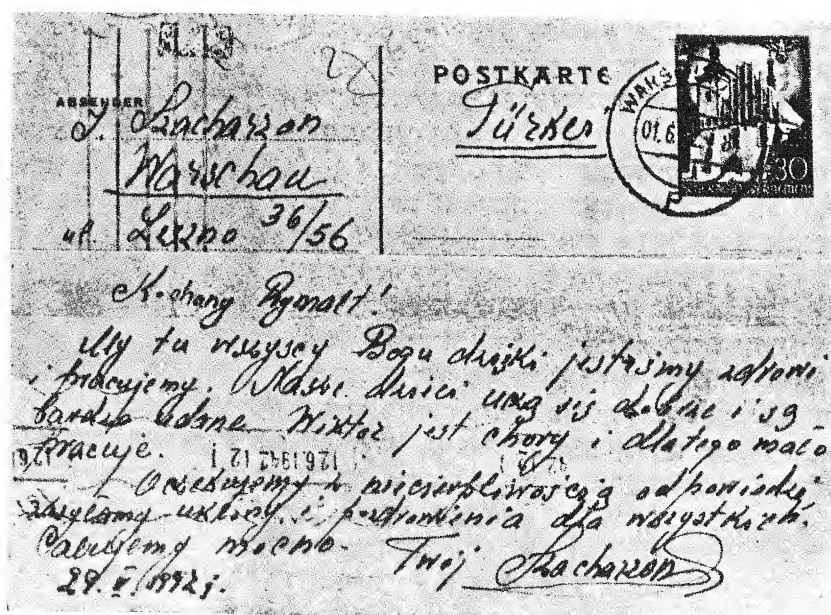 ABSENDER
J. Szacharzon
Warschau
ul. Leszno 36/56
POSTKARTE
Türkei
WARSCH
01.6
30
Kochany Rymalt!
My tu wszyscy Bogu dzięki jesteśmy zdrowi
i pracujemy. Nasze dzieci uczą się dobrze i są
bardzo udane. Wiktor jest chory i dlatego mało
pracuje.
Oczekujemy z niecierpliwością odpowiedzi
zasyłamy ukłony i pozdrowienia dla wszystkich.
Całujemy mocno. Twój Szacharzon
29. V. 1942 r.